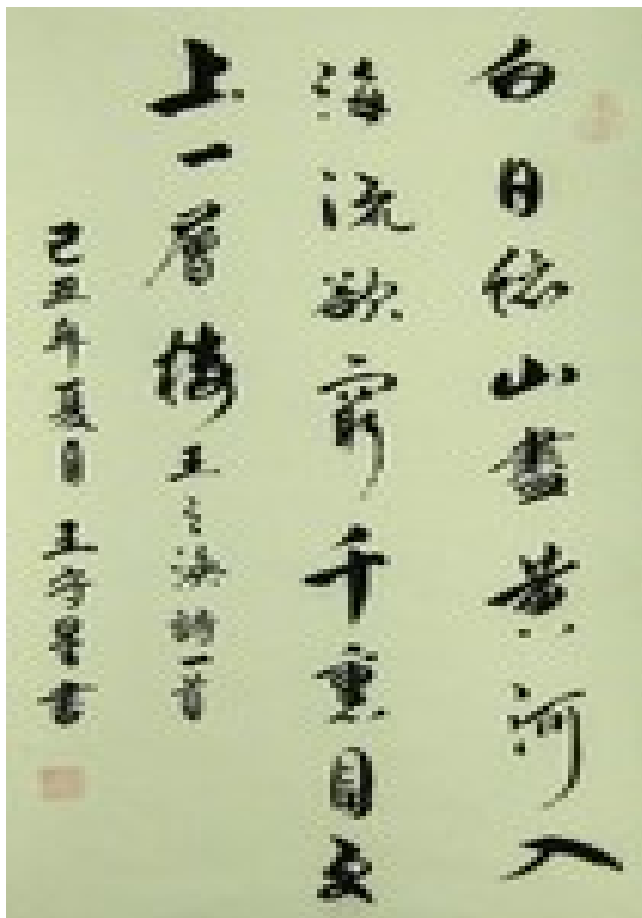 白日依山盡黃河入
海流欲窮千里目更
上一層樓 王之渙詩一首
己丑年夏日 王守 書